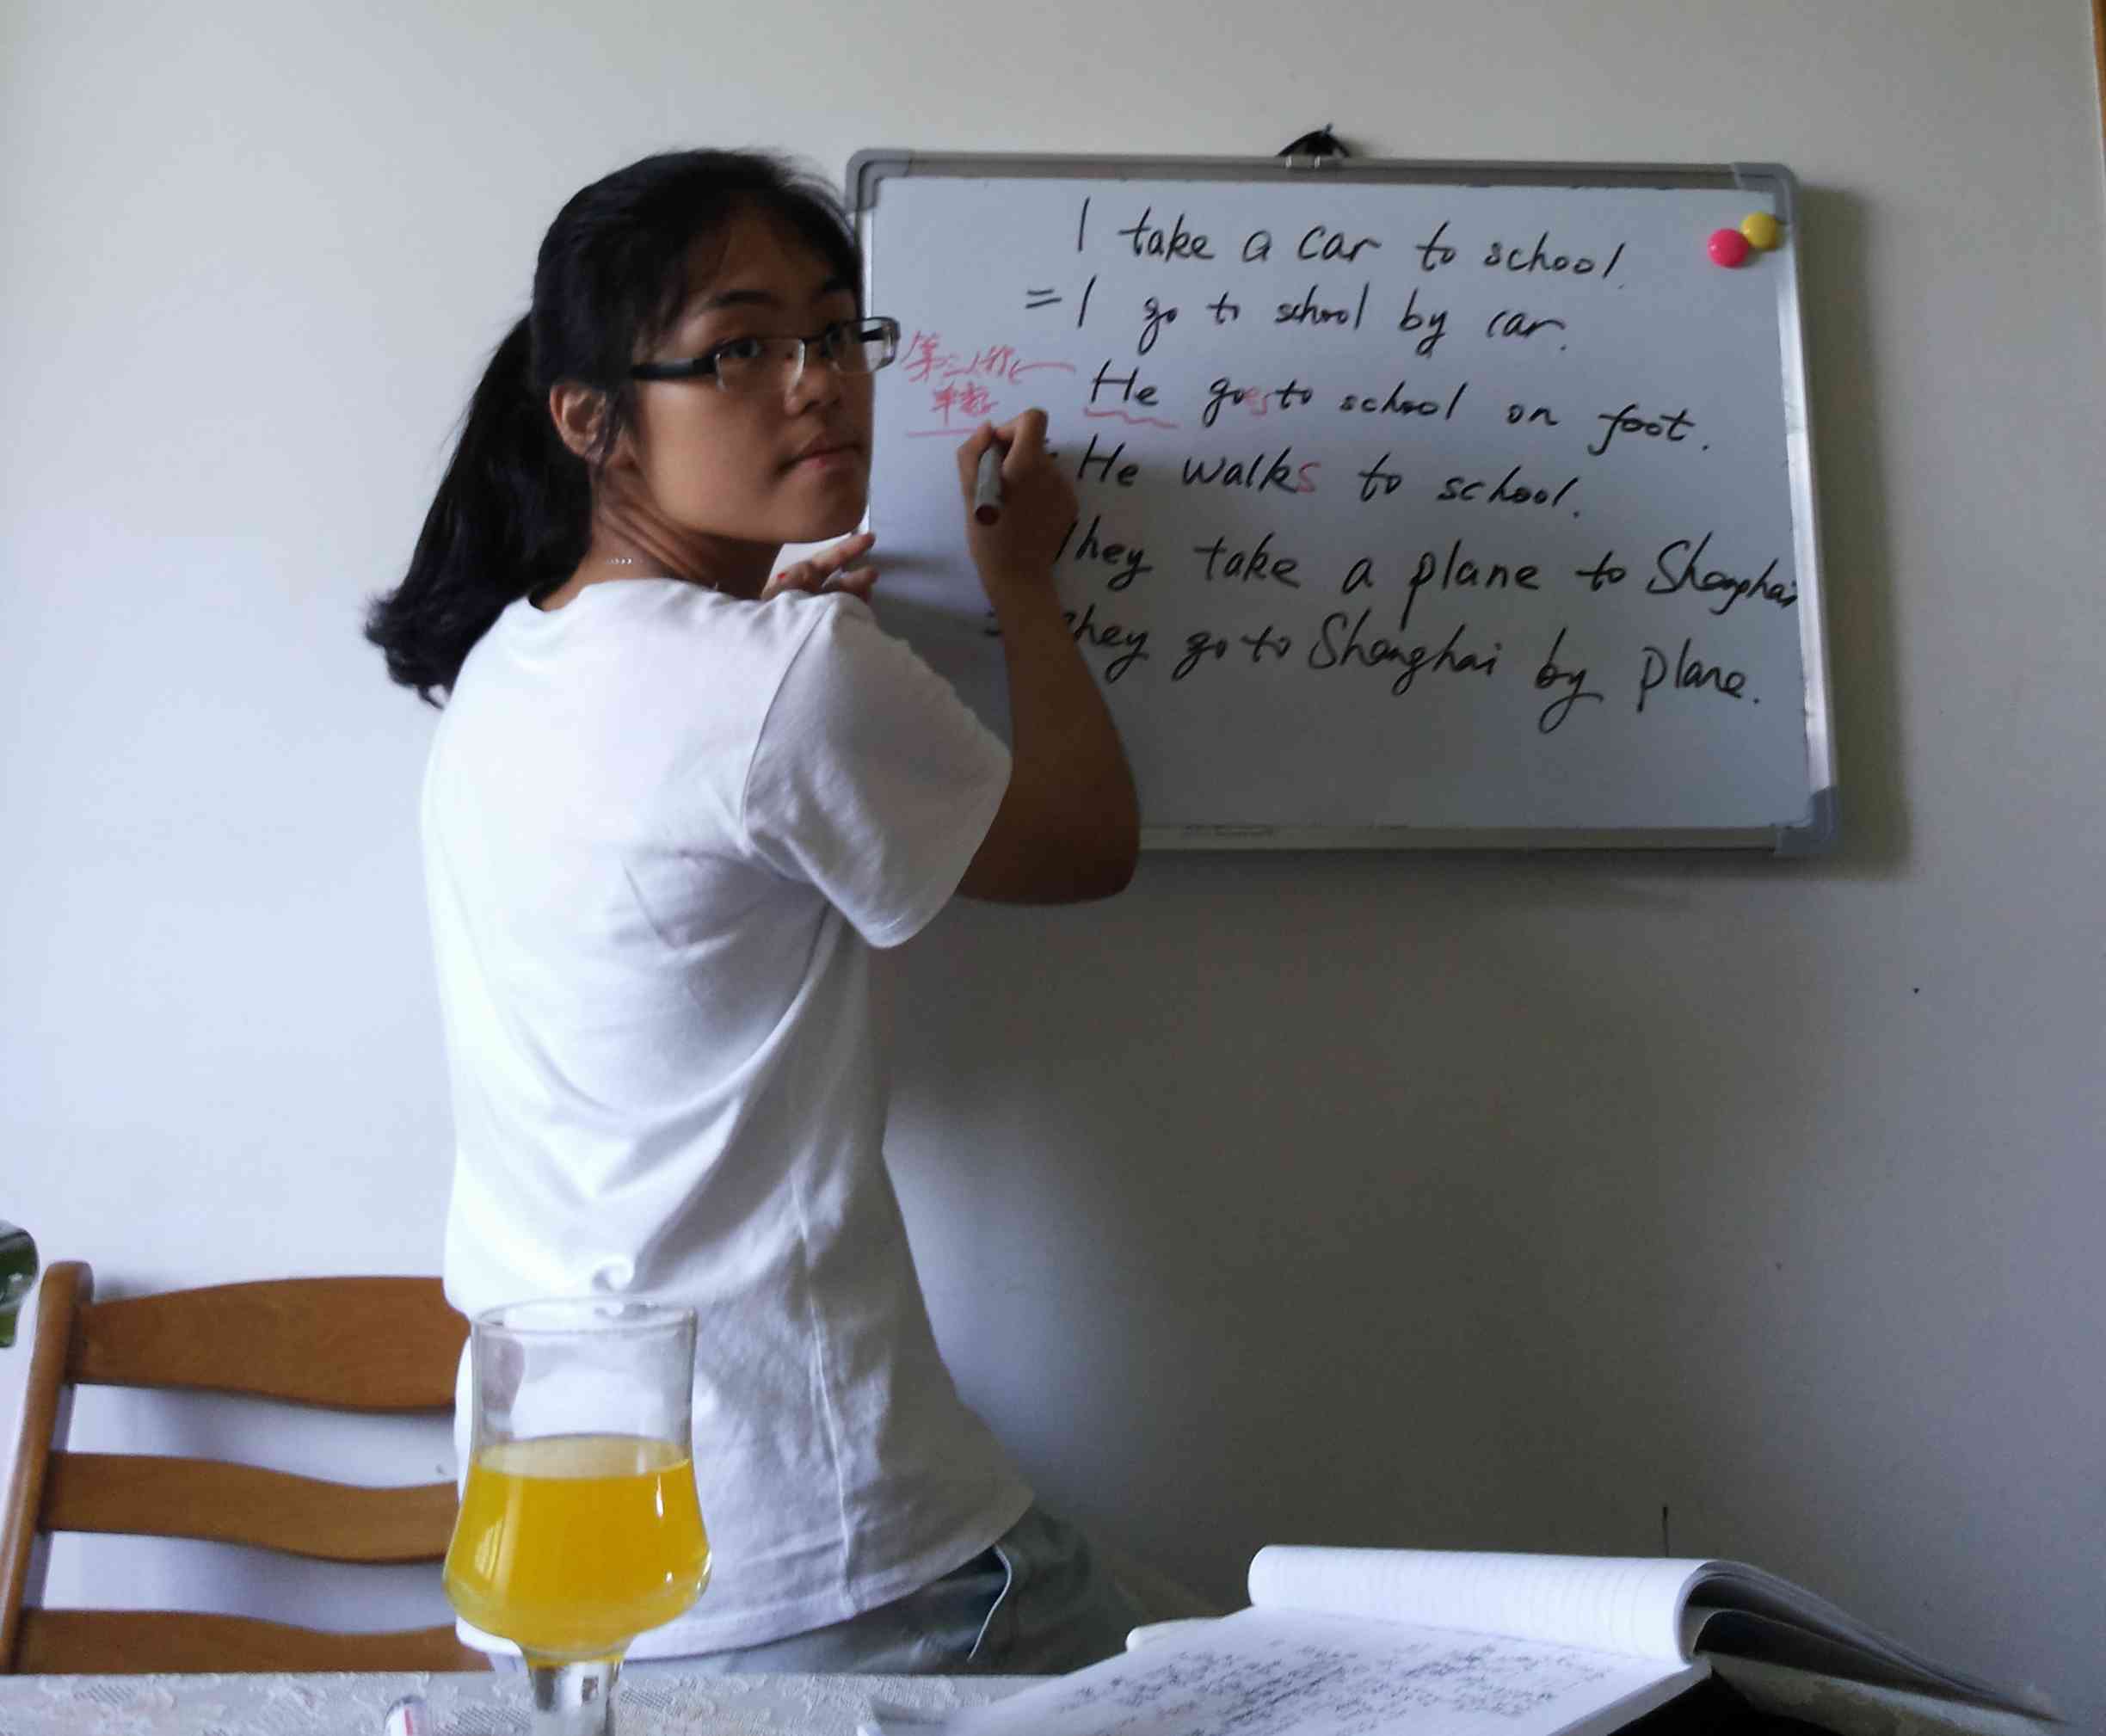 I take a car to school.
= I go to school by car.
第三人称
单数
He goes to school on foot.
= He walks to school.
They take a plane to Shanghai
= They go to Shanghai by plane.